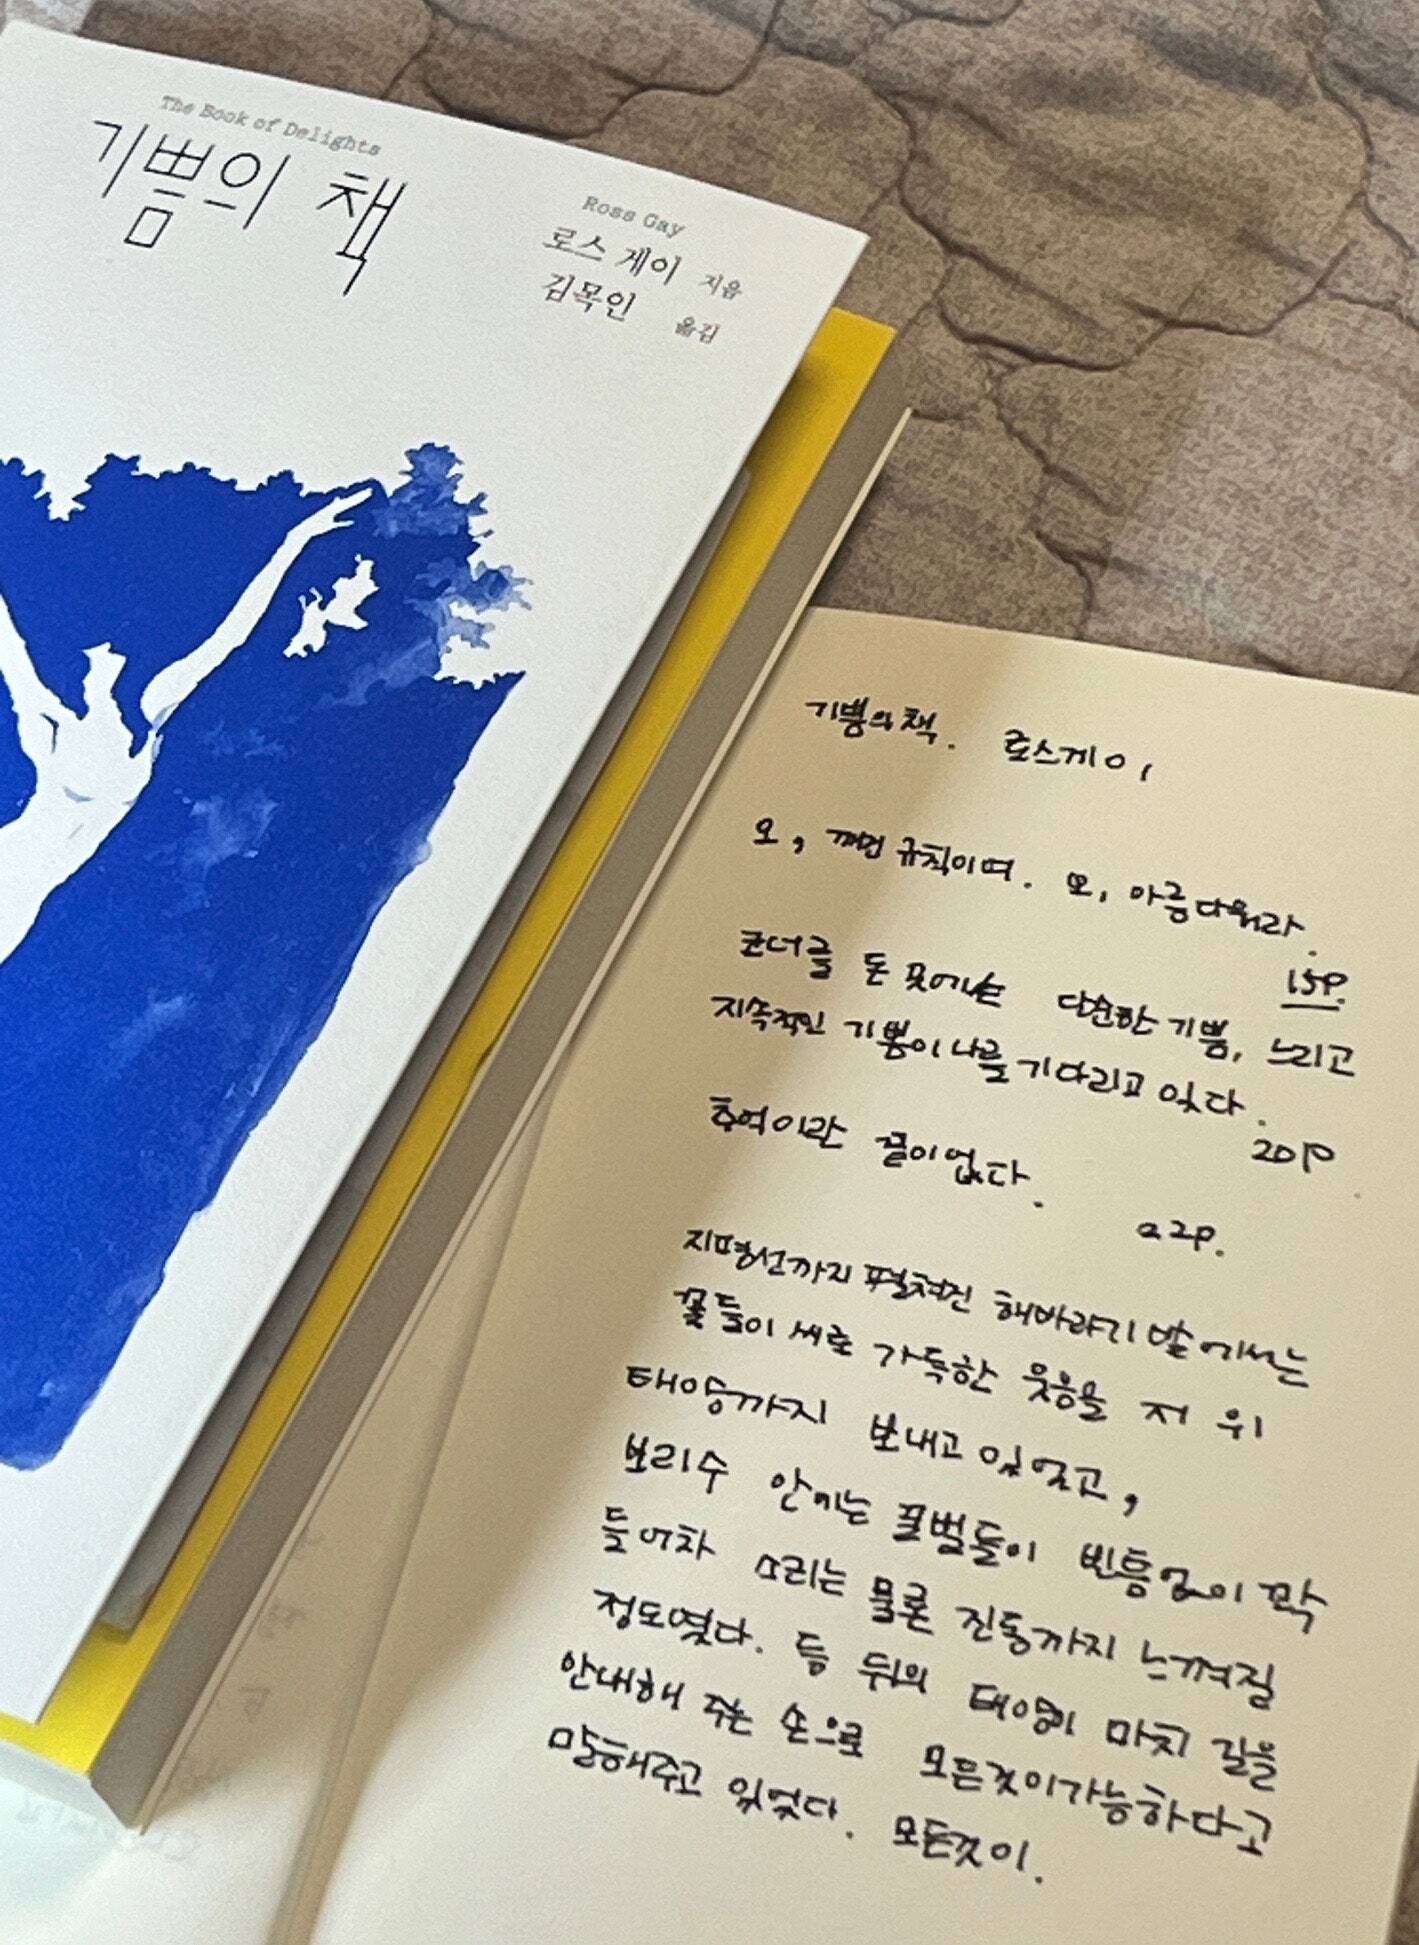 The Book of Delights
기쁨의 책
Ross Gay
로스 게이 지음
김목인 옮김
기쁨의 책. 로스게이
오, 깨먼 규칙이여. 오, 아름다워라.
15p.
코너를 돈 곳에는 단순한 기쁨, 느리고
지속적인 기쁨이 나를 기다리고 있다.
20p
추억이란 끝이 없다.
22p.
지평선까지 펼쳐진 해바라기 밭에서는
꽃들이 씨로 가득한 웃음을 저 위
태양까지 보내고 있었고,
보리수 안에는 꿀벌들이 빈틈없이 꽉
들어차 소리는 물론 진동까지 느껴질
정도였다. 등 뒤의 태양이 마치 길을
안내해 주는 손으로 모든것이가능하다고
말해주고 있었다. 모든것이.